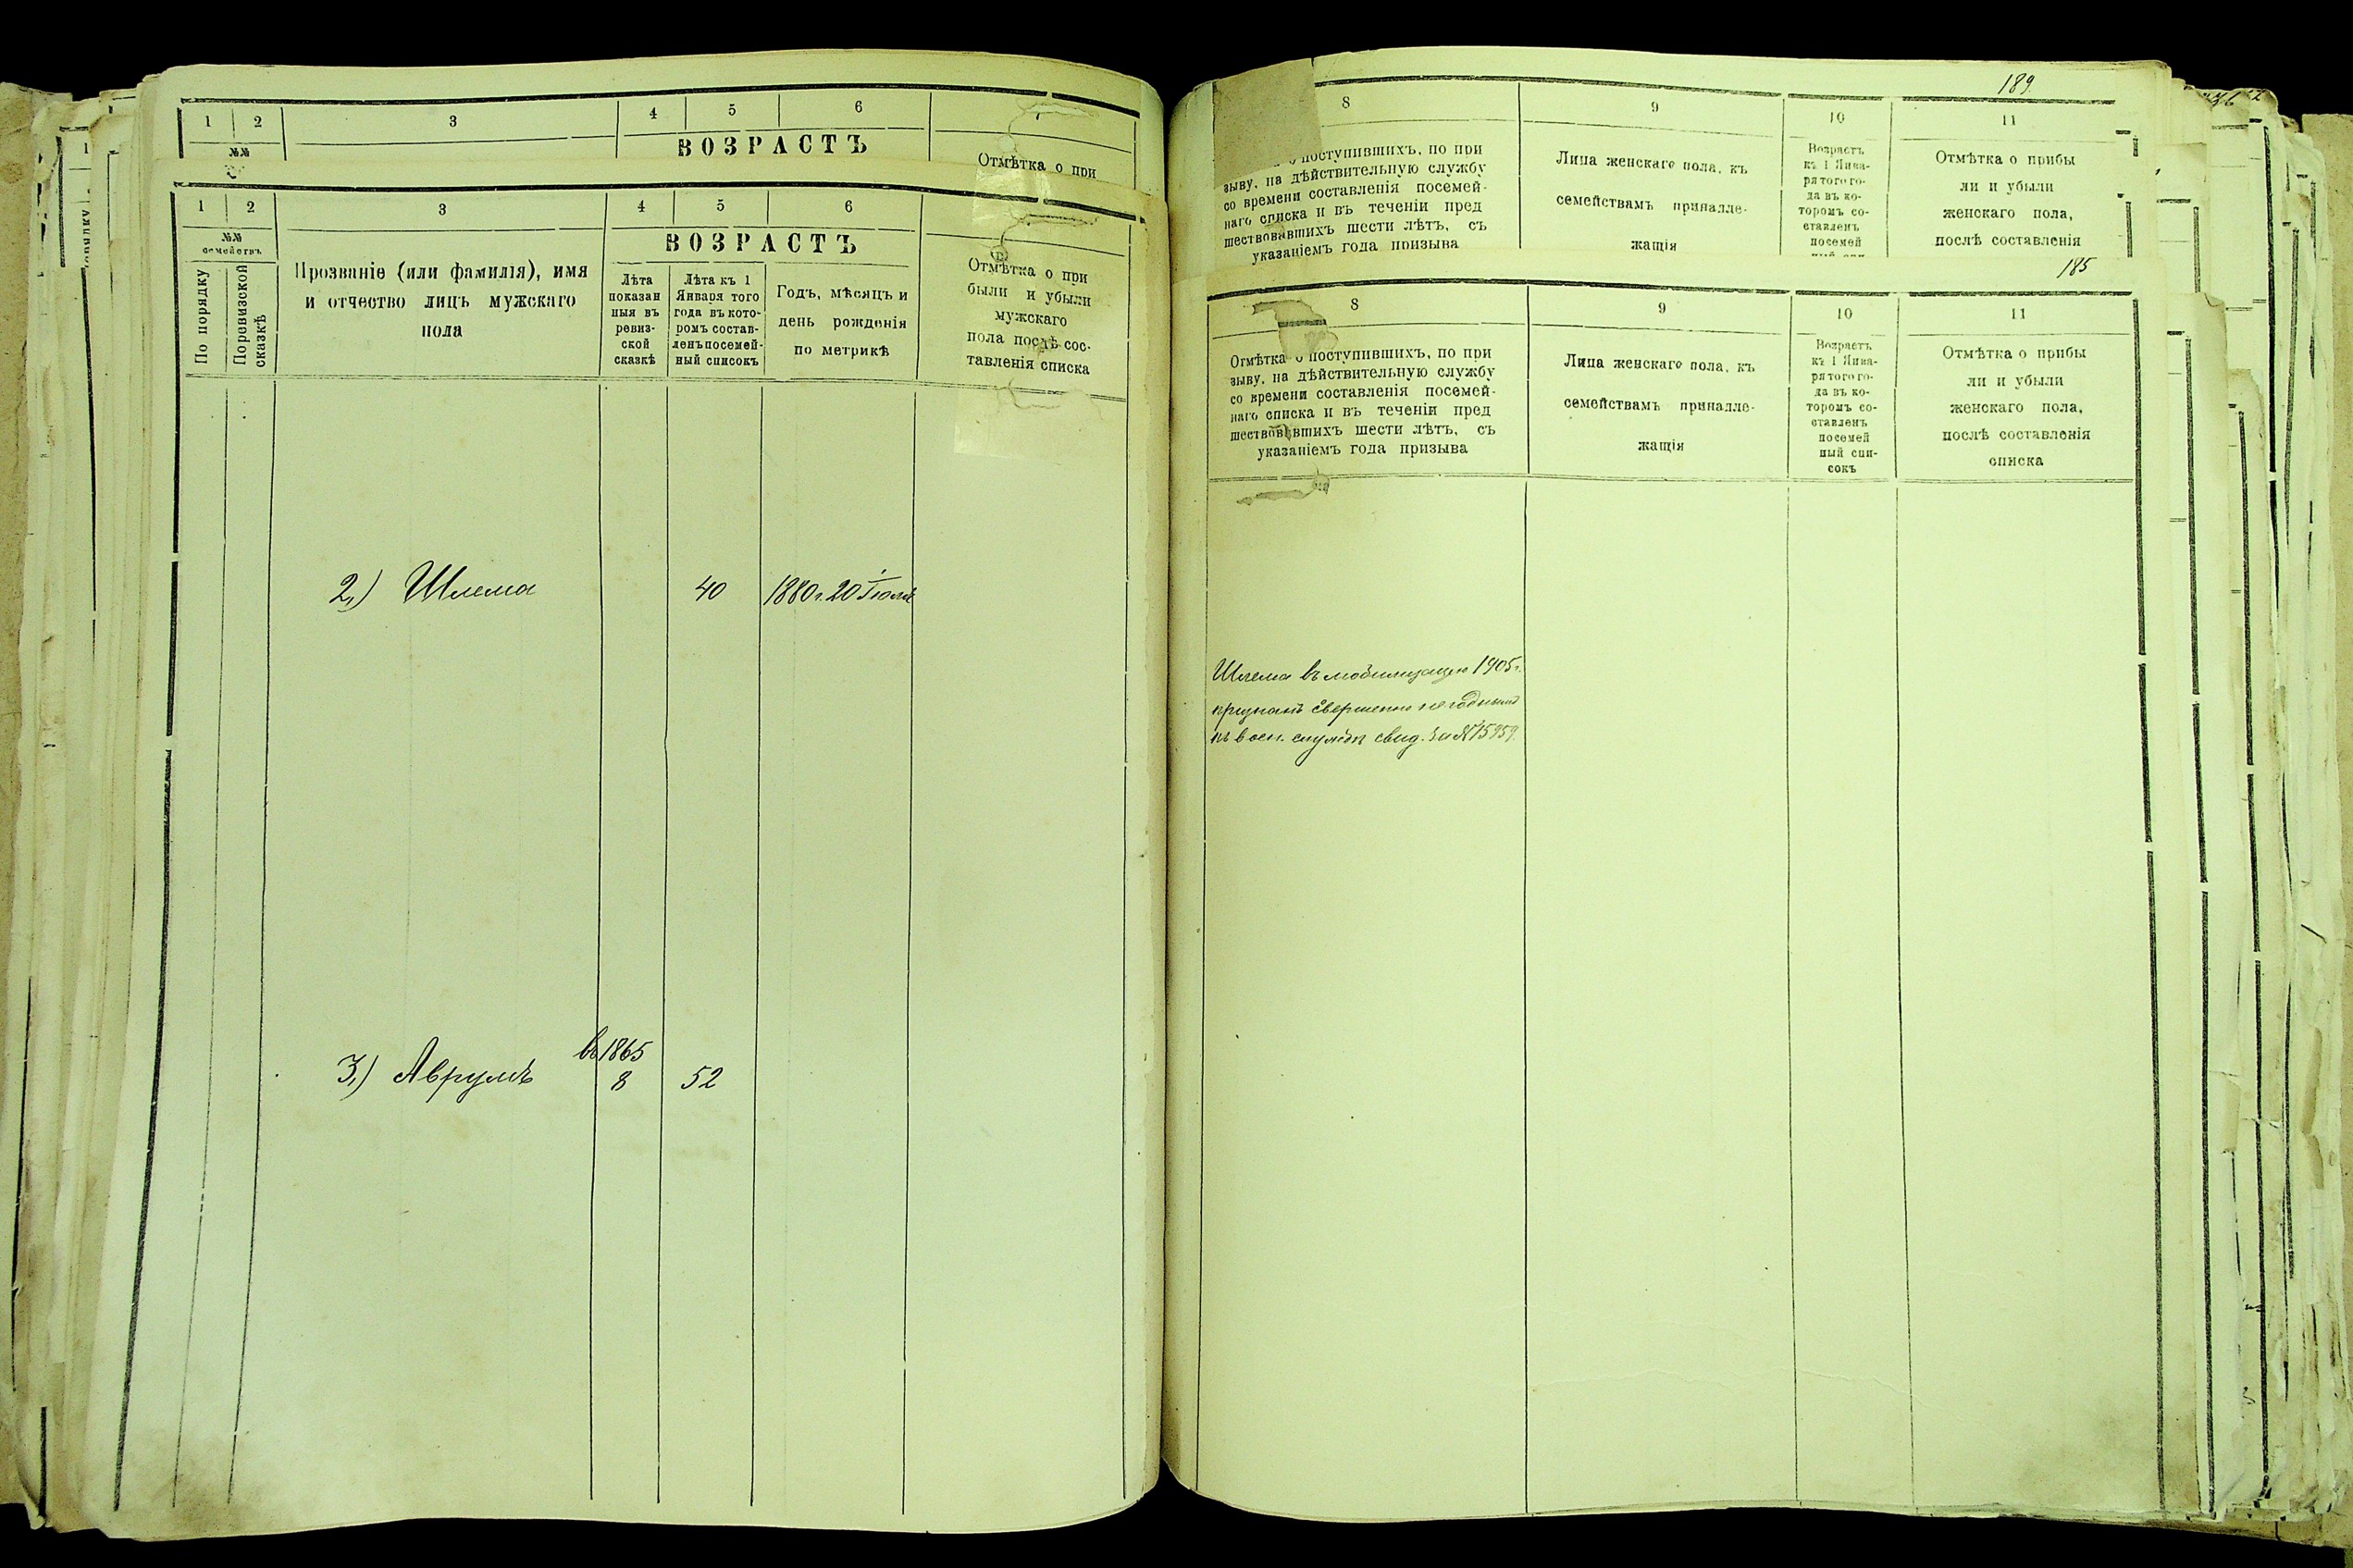 1 2 3 4 5 6
№№
ВОЗРАСТЪ
Отмѣтка о при
1 2 3 4 5 6
№№
семействъ
По порядку
По ревизской
сказкѣ
Прозваніе (или фамилія), имя
и отчество лицъ мужскаго
пола
ВОЗРАСТЪ
Лѣта
показан
ныя въ
ревиз-
ской
сказкѣ
Лѣта къ 1
Января того
года въ кото-
ромъ состав-
ленъ посемей-
ный списокъ
Годъ, мѣсяцъ и
день рожденія
по метрикѣ
Отмѣтка о при
были и убыли
мужскаго
пола послѣ сос-
тавленія списка
2) Шлема 40 1880 г. 20 Іюля
въ 1865
3) Аврумъ 8 52
189
8 9 10 11
поступившихъ, по при
зыву, на дѣйствительную службу
со времени составленія посемей-
наго списка и въ теченіи пред
шествовавшихъ шести лѣтъ, съ
указаніемъ года призыва
Лица женскаго пола, къ
семействамъ принадле-
жащія
Возрастъ
къ 1 Янва-
ря того го-
да въ ко-
торомъ со-
ставленъ
посемей
Отмѣтка о прибы
ли и убыли
женскаго пола,
послѣ составленія
185
8 9 10 11
Отмѣтка о поступившихъ, по при
зыву, на дѣйствительную службу
со времени составленія посемей-
наго списка и въ теченіи пред
шествовавшихъ шести лѣтъ, съ
указаніемъ года призыва
Лица женскаго пола, къ
семействамъ принадле-
жащія
Возрастъ
къ 1 Янва-
ря того го-
да въ ко-
торомъ со-
ставленъ
посемей
ный спи-
сокъ
Отмѣтка о прибы
ли и убыли
женскаго пола,
послѣ составленія
списка
Шлема въ мобилизацію 1905 г.
признанъ совершенно негоднымъ
къ воен. службѣ свид. за № 15959.